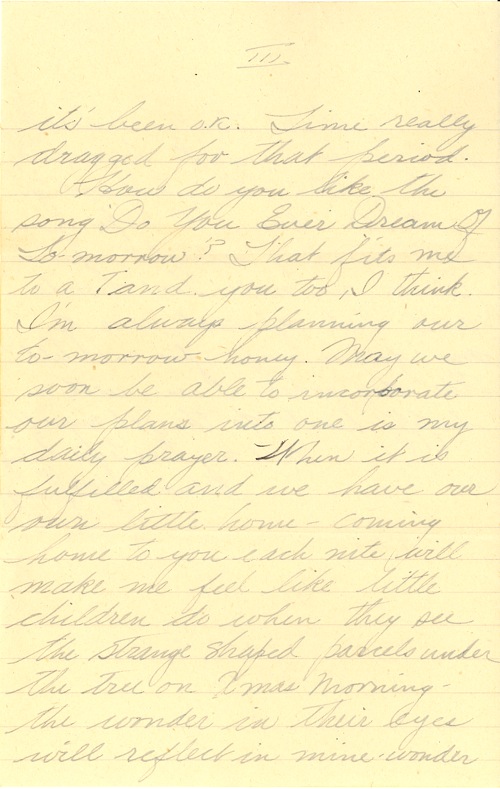 III.
it's been o.k. Time really
dragged for that period.
How do you like the
song "Do You Ever Dream Of
To-morrow"? That fits me
to a T and you too, I think.
I'm always planning our
to-morrow honey. May we
soon be able to incorporate
our plans into one is my
daily prayer. When it is
fulfilled and we have our
own little home - coming
home to you each nite, will
make me feel like little
children do when they see
the strange shaped parcels under
the tree on Xmas Morning -
the wonder in their eyes
will reflect in mine - wonder